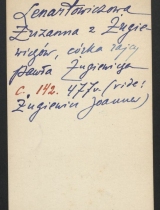 Lenartowiczowa
Zuzanna z Żugie-
wiczów, córka rajcy
Pawła Żugiewicza
c. 142. 477v. (vide:
Żugiewicz Joannes)